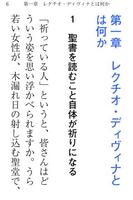 6　第一章　レクチオ・ディヴィナとは何か
第一章　レクチオ・ディヴィナと
は何か
1　聖書を読むこと自体が祈りになる
「祈っている人」というと、皆さんはど
ういう姿を思い浮かべられますか。うら
若い女性が、木漏れ日の射し込む聖堂で、